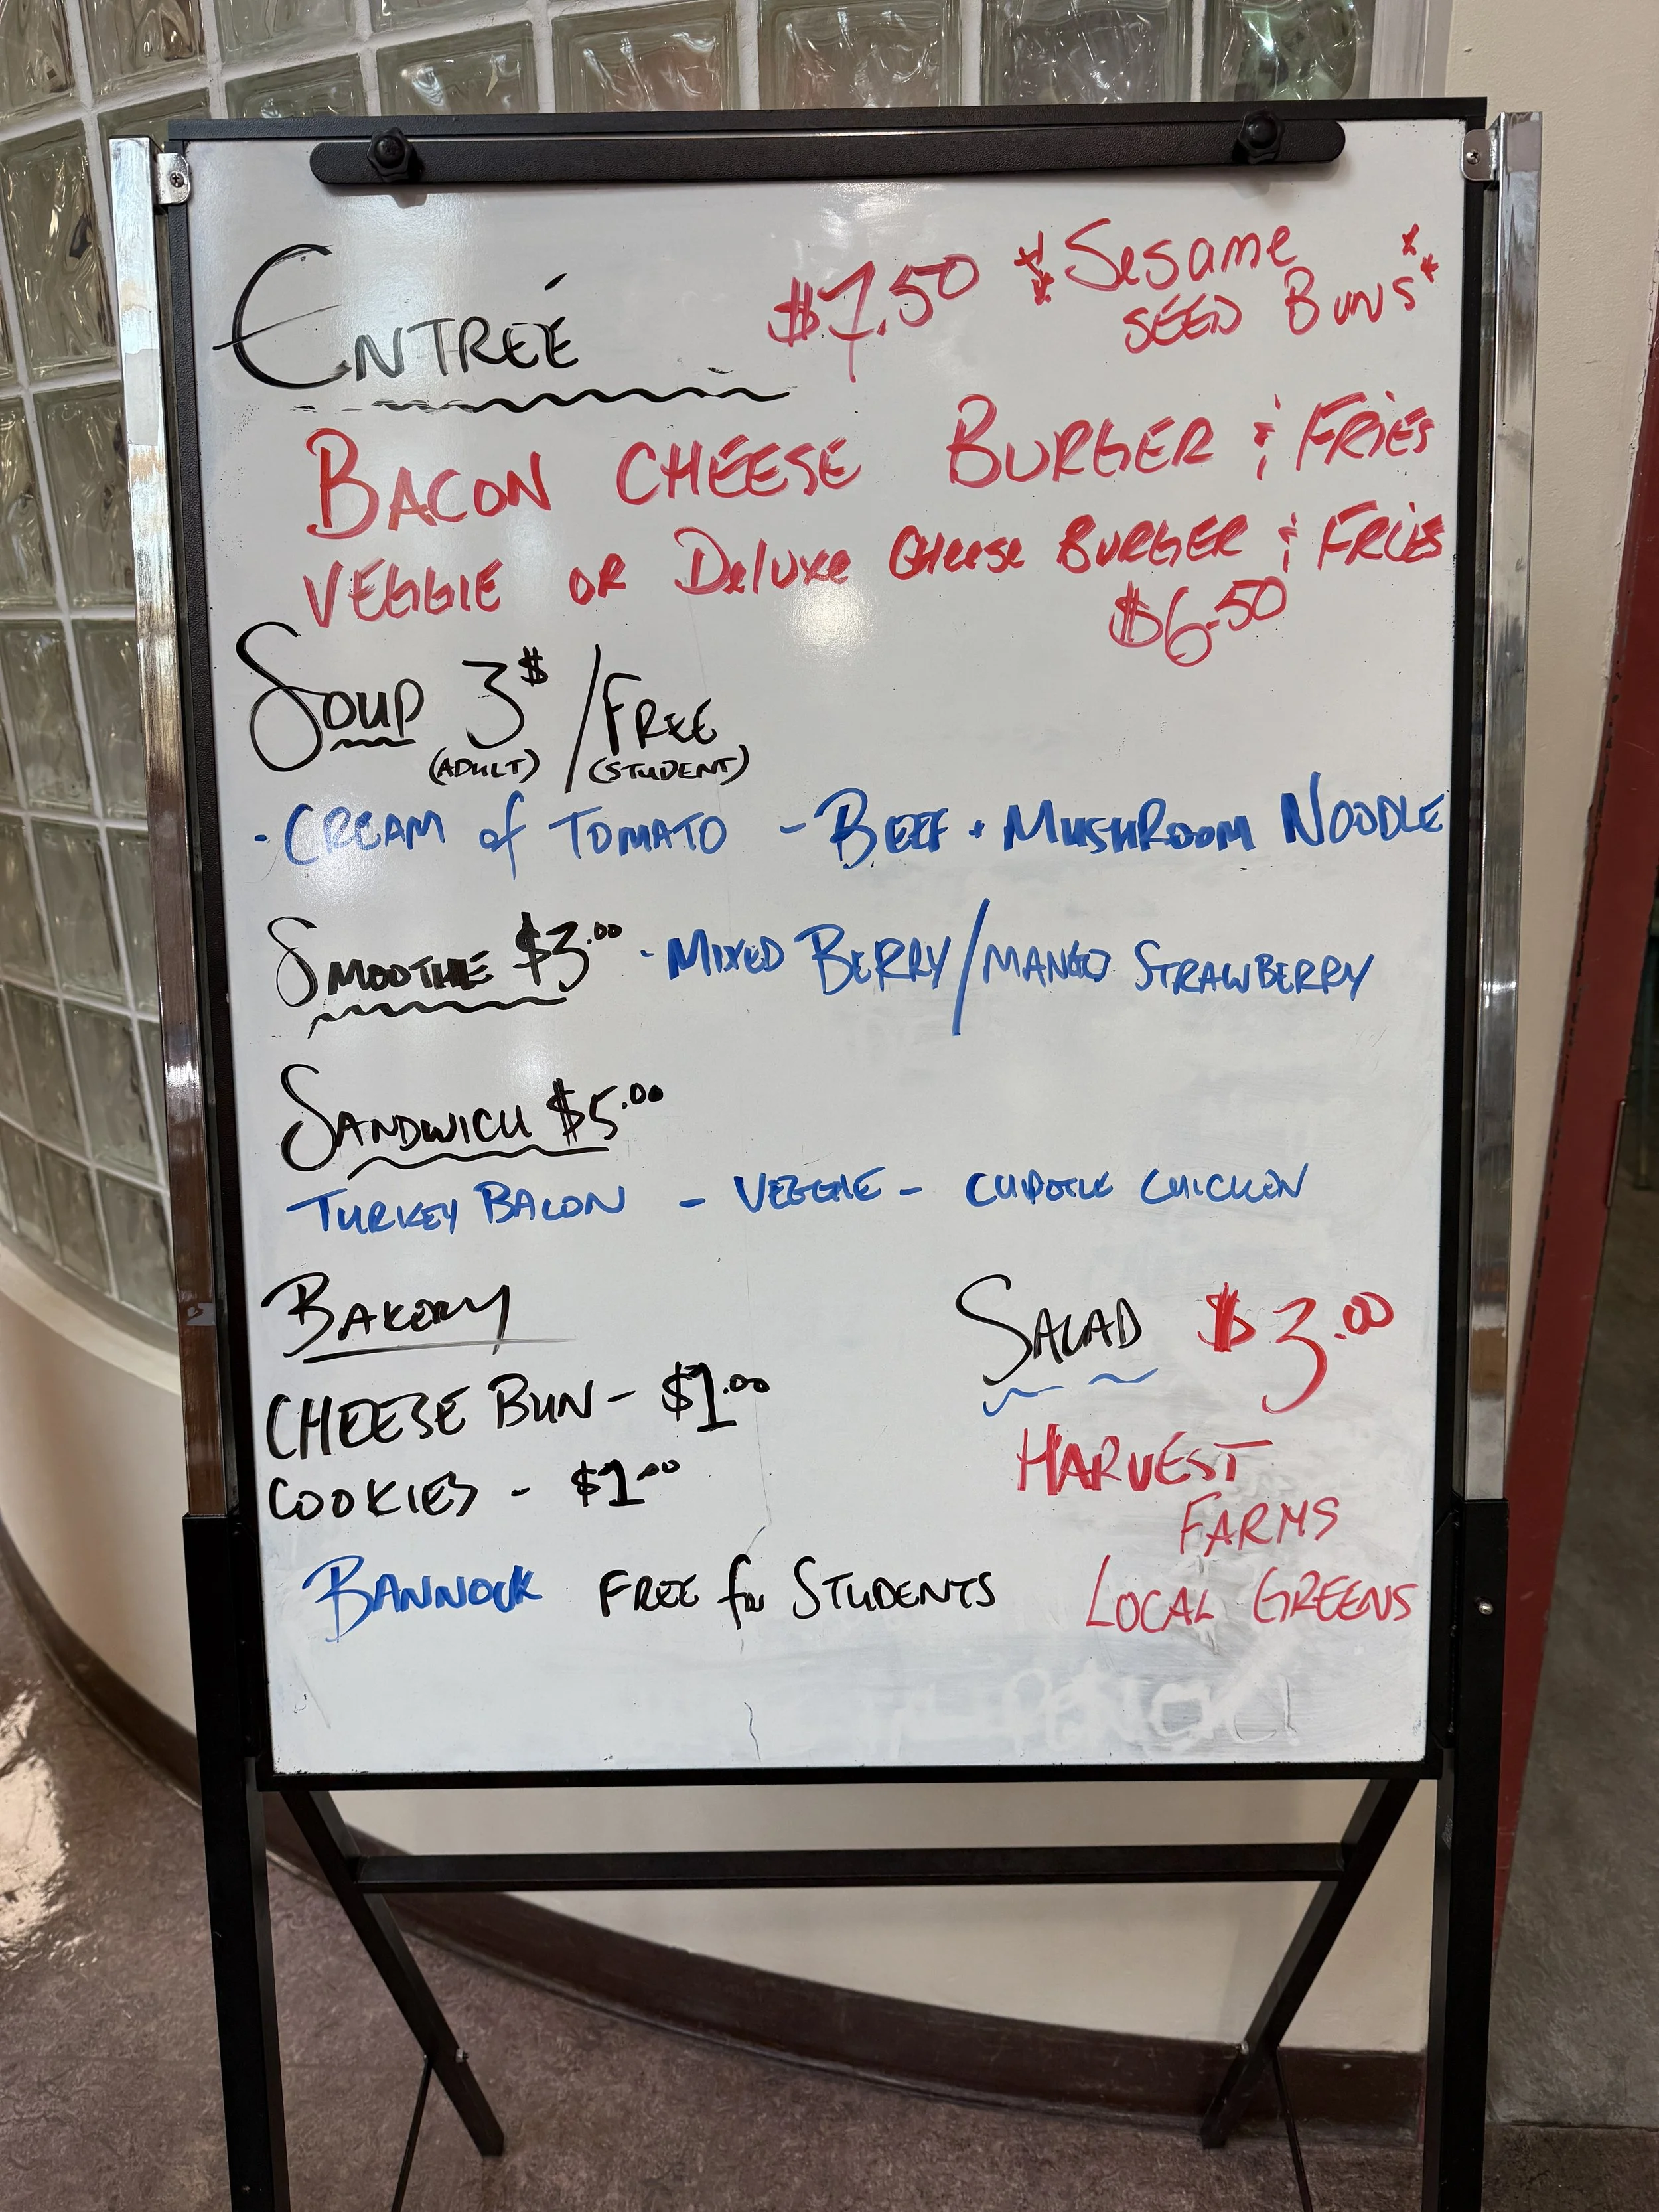 ENTREÉ $7.50 **Sesame
SEED BUNS**
BACON CHEESE BURGER & FRIES
VEGGIE OR Deluxe Cheese BURGER & FRIES
$6.50
SOUP 3$ / FREE
(ADULT) (STUDENT)
- CREAM of TOMATO - BEEF + MUSHROOM NOODLE
SMOOTHIE $3.00 - MIXED BERRY / MANGO STRAWBERRY
SANDWICH $5.00
TURKEY BACON - VEGGIE - CHIPOTLE CHICKEN
BAKERY
CHEESE BUN - $1.00
COOKIES - $1.00
BANNOCK FREE for STUDENTS
SALAD $3.00
HARVEST
FARMS
LOCAL GREENS